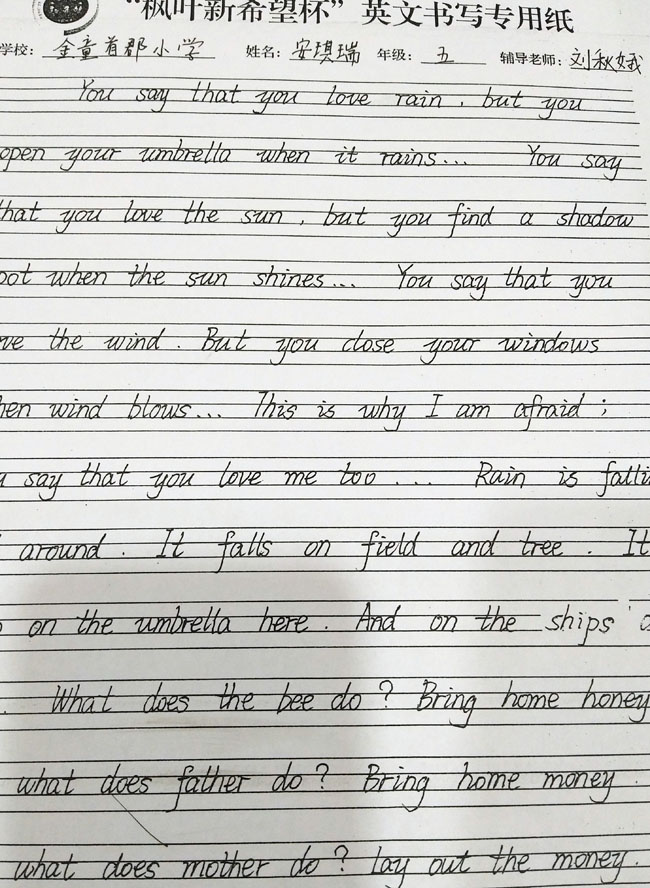 “枫叶新希望杯”英文书写专用纸
学校: 金童首郡小学 姓名: 安琪瑞 年级: 五 辅导老师: 刘秋娥
You say that you love rain , but you
open your umbrella when it rains... You say
that you love the sun , but you find a shadow
pot when the sun shines... You say that you
ve the wind . But you close your windows
hen wind blows... This is why I am afraid ;
u say that you love me too ... Rain is falli
around . It falls on field and tree . It
on the umbrella here . And on the ships
. What does the bee do ? Bring home honey
what does father do ? Bring home money .
what does mother do ? lay out the money .